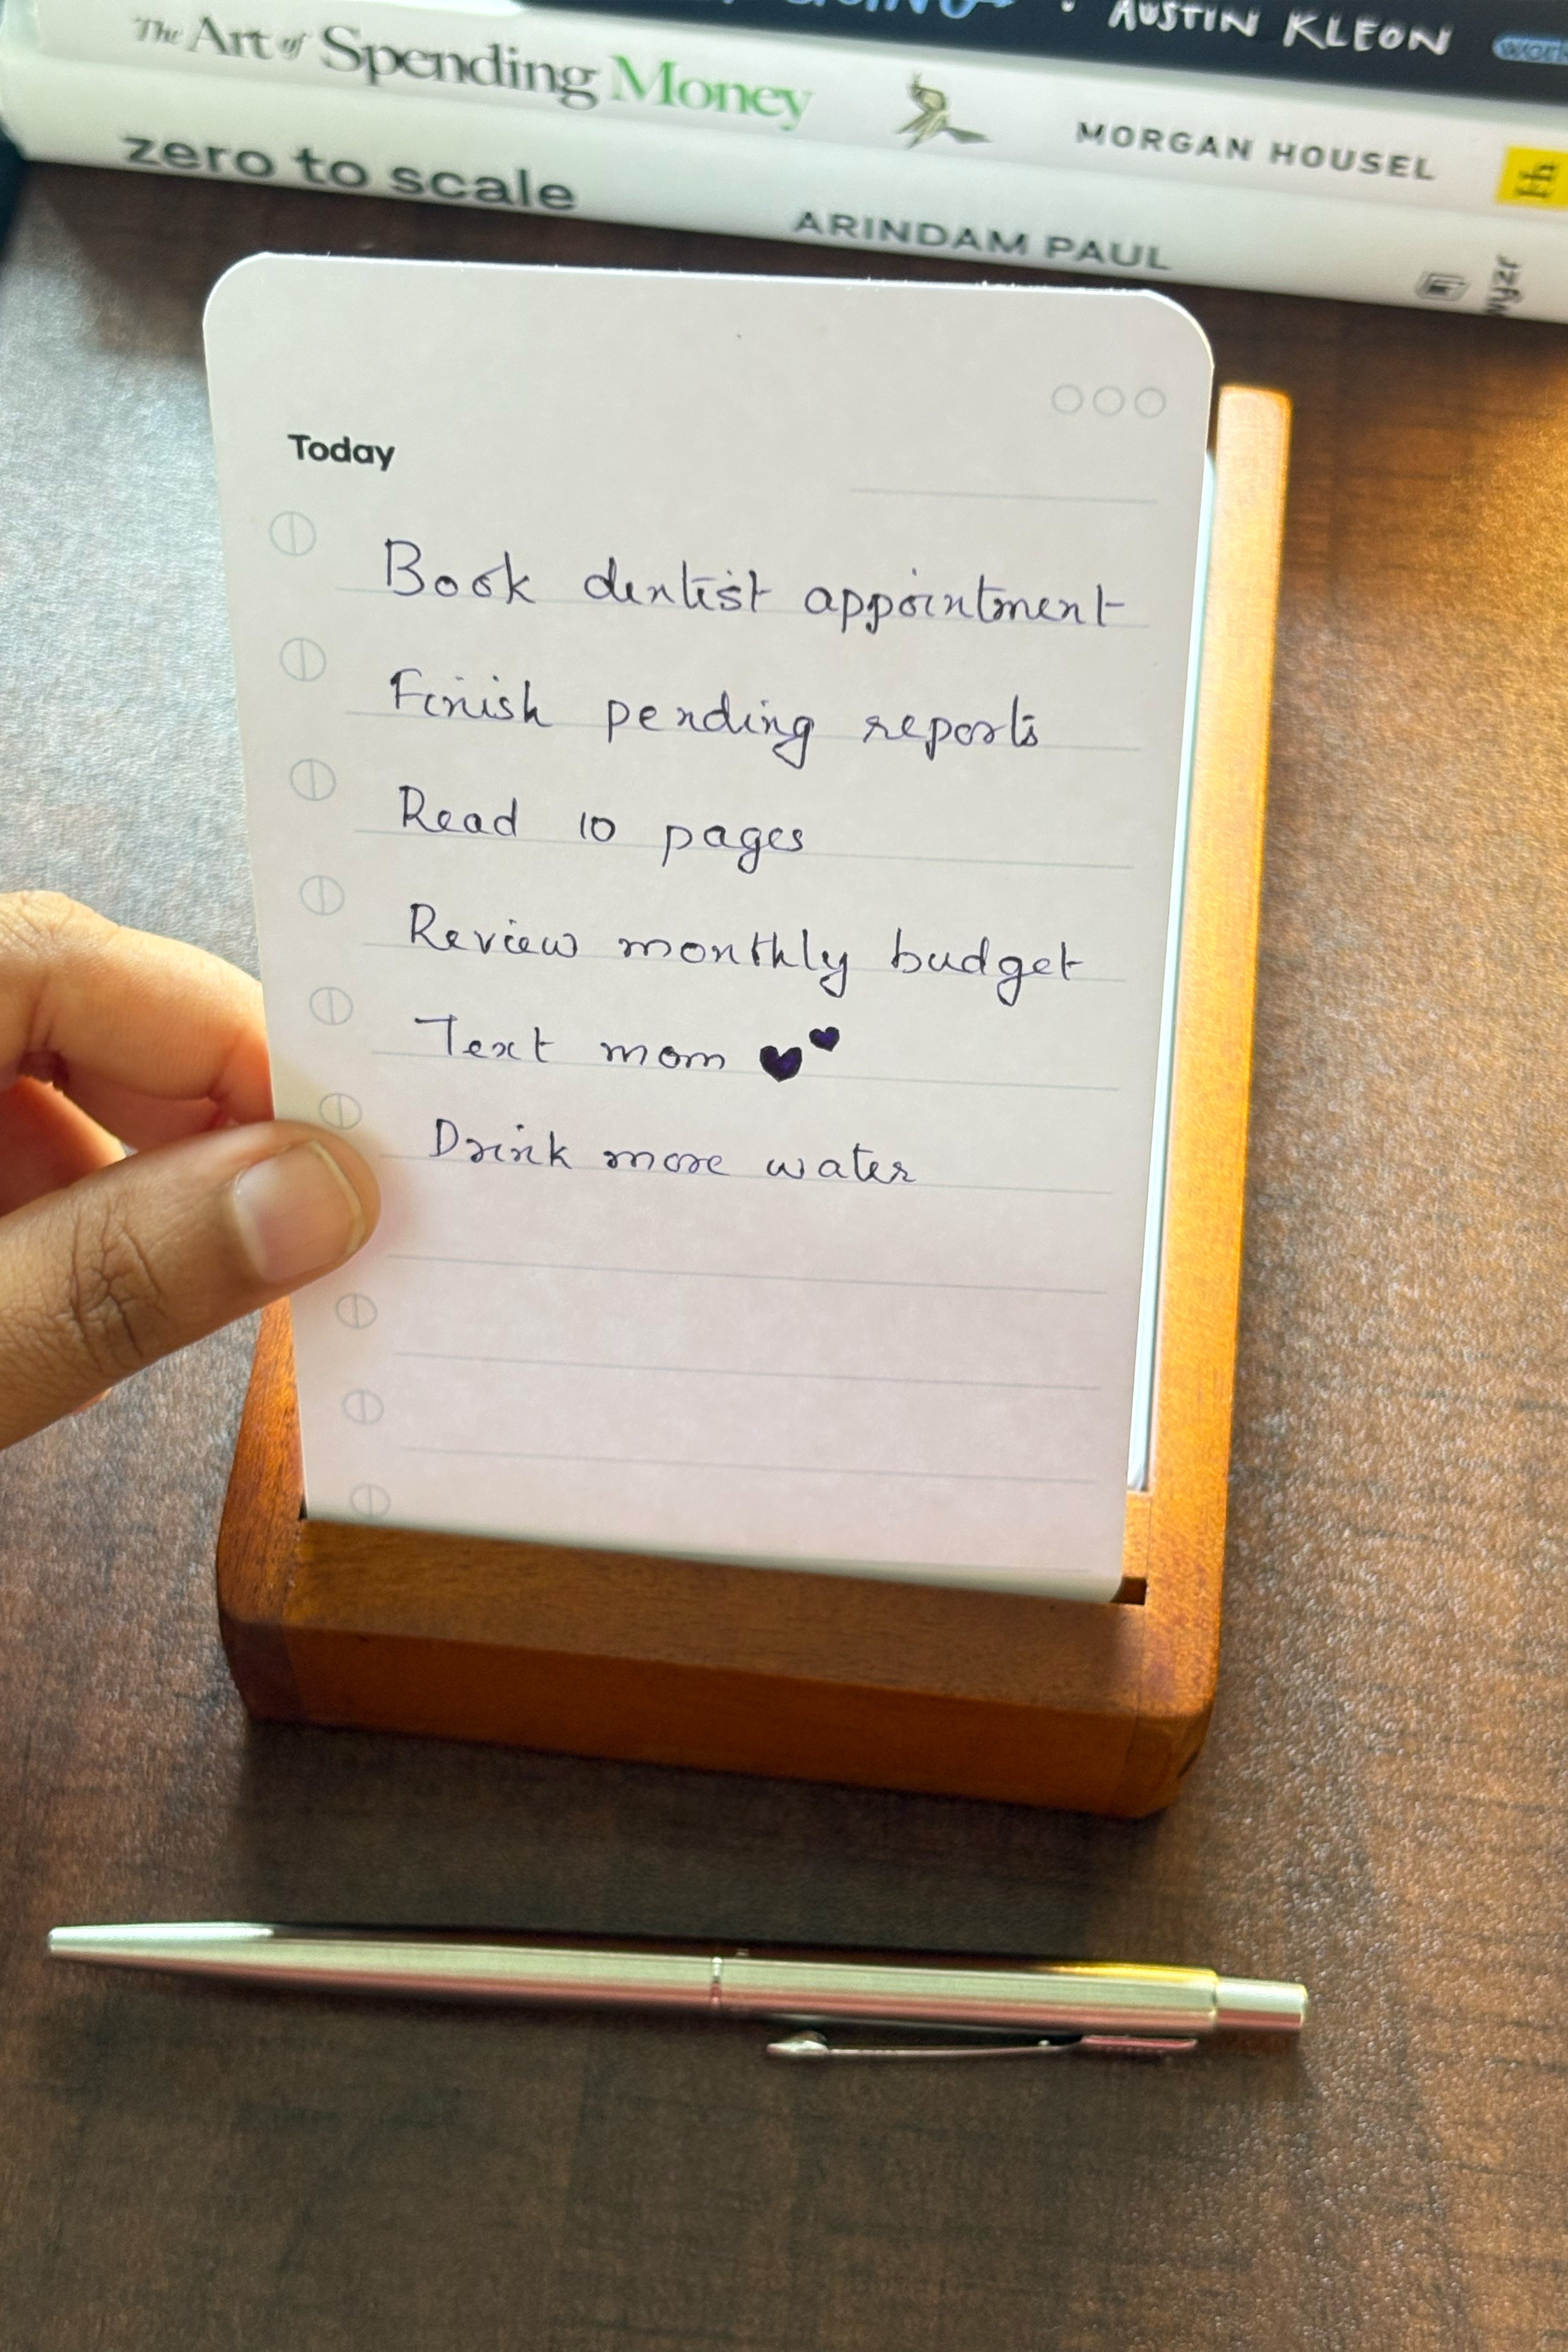 AUSTIN KLEON
The Art of Spending Money MORGAN HOUSEL
zero to scale ARINDAM PAUL
Today
Book dentist appointment
Finish pending reports
Read 10 pages
Review monthly budget
Text mom
Drink more water